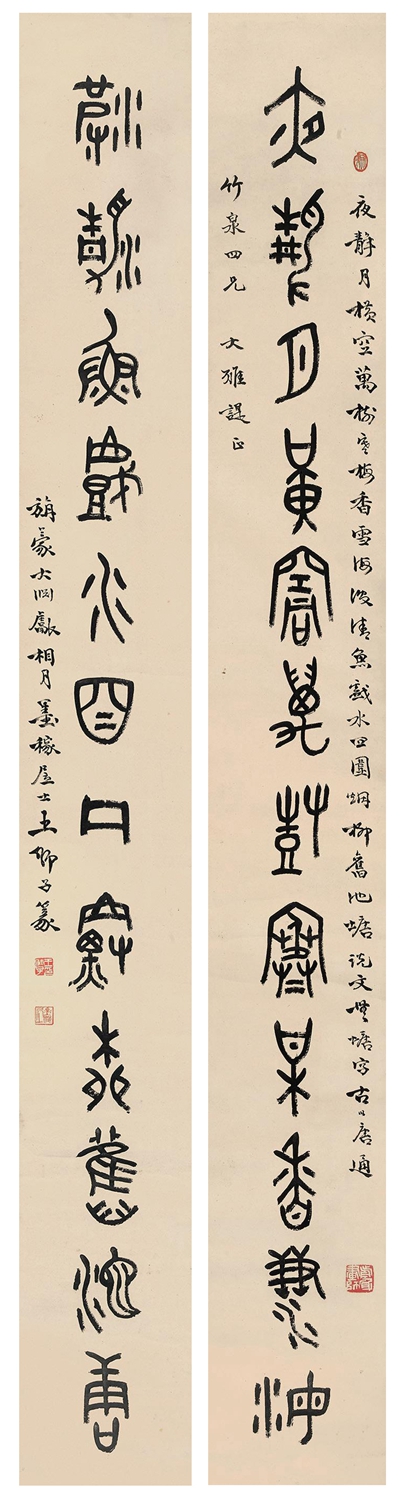 夜靜月橫空萬樹寒梅香雪海清魚戲水四圍烟柳舊池塘說文無塘字古以唐通
夜靜月黃空萬樹寒某香雪海
竹泉四兄 大雅諟正
清魚戲水四囗煙柳舊池唐
旃蒙大渊獻相月墨稼居士王師子篆